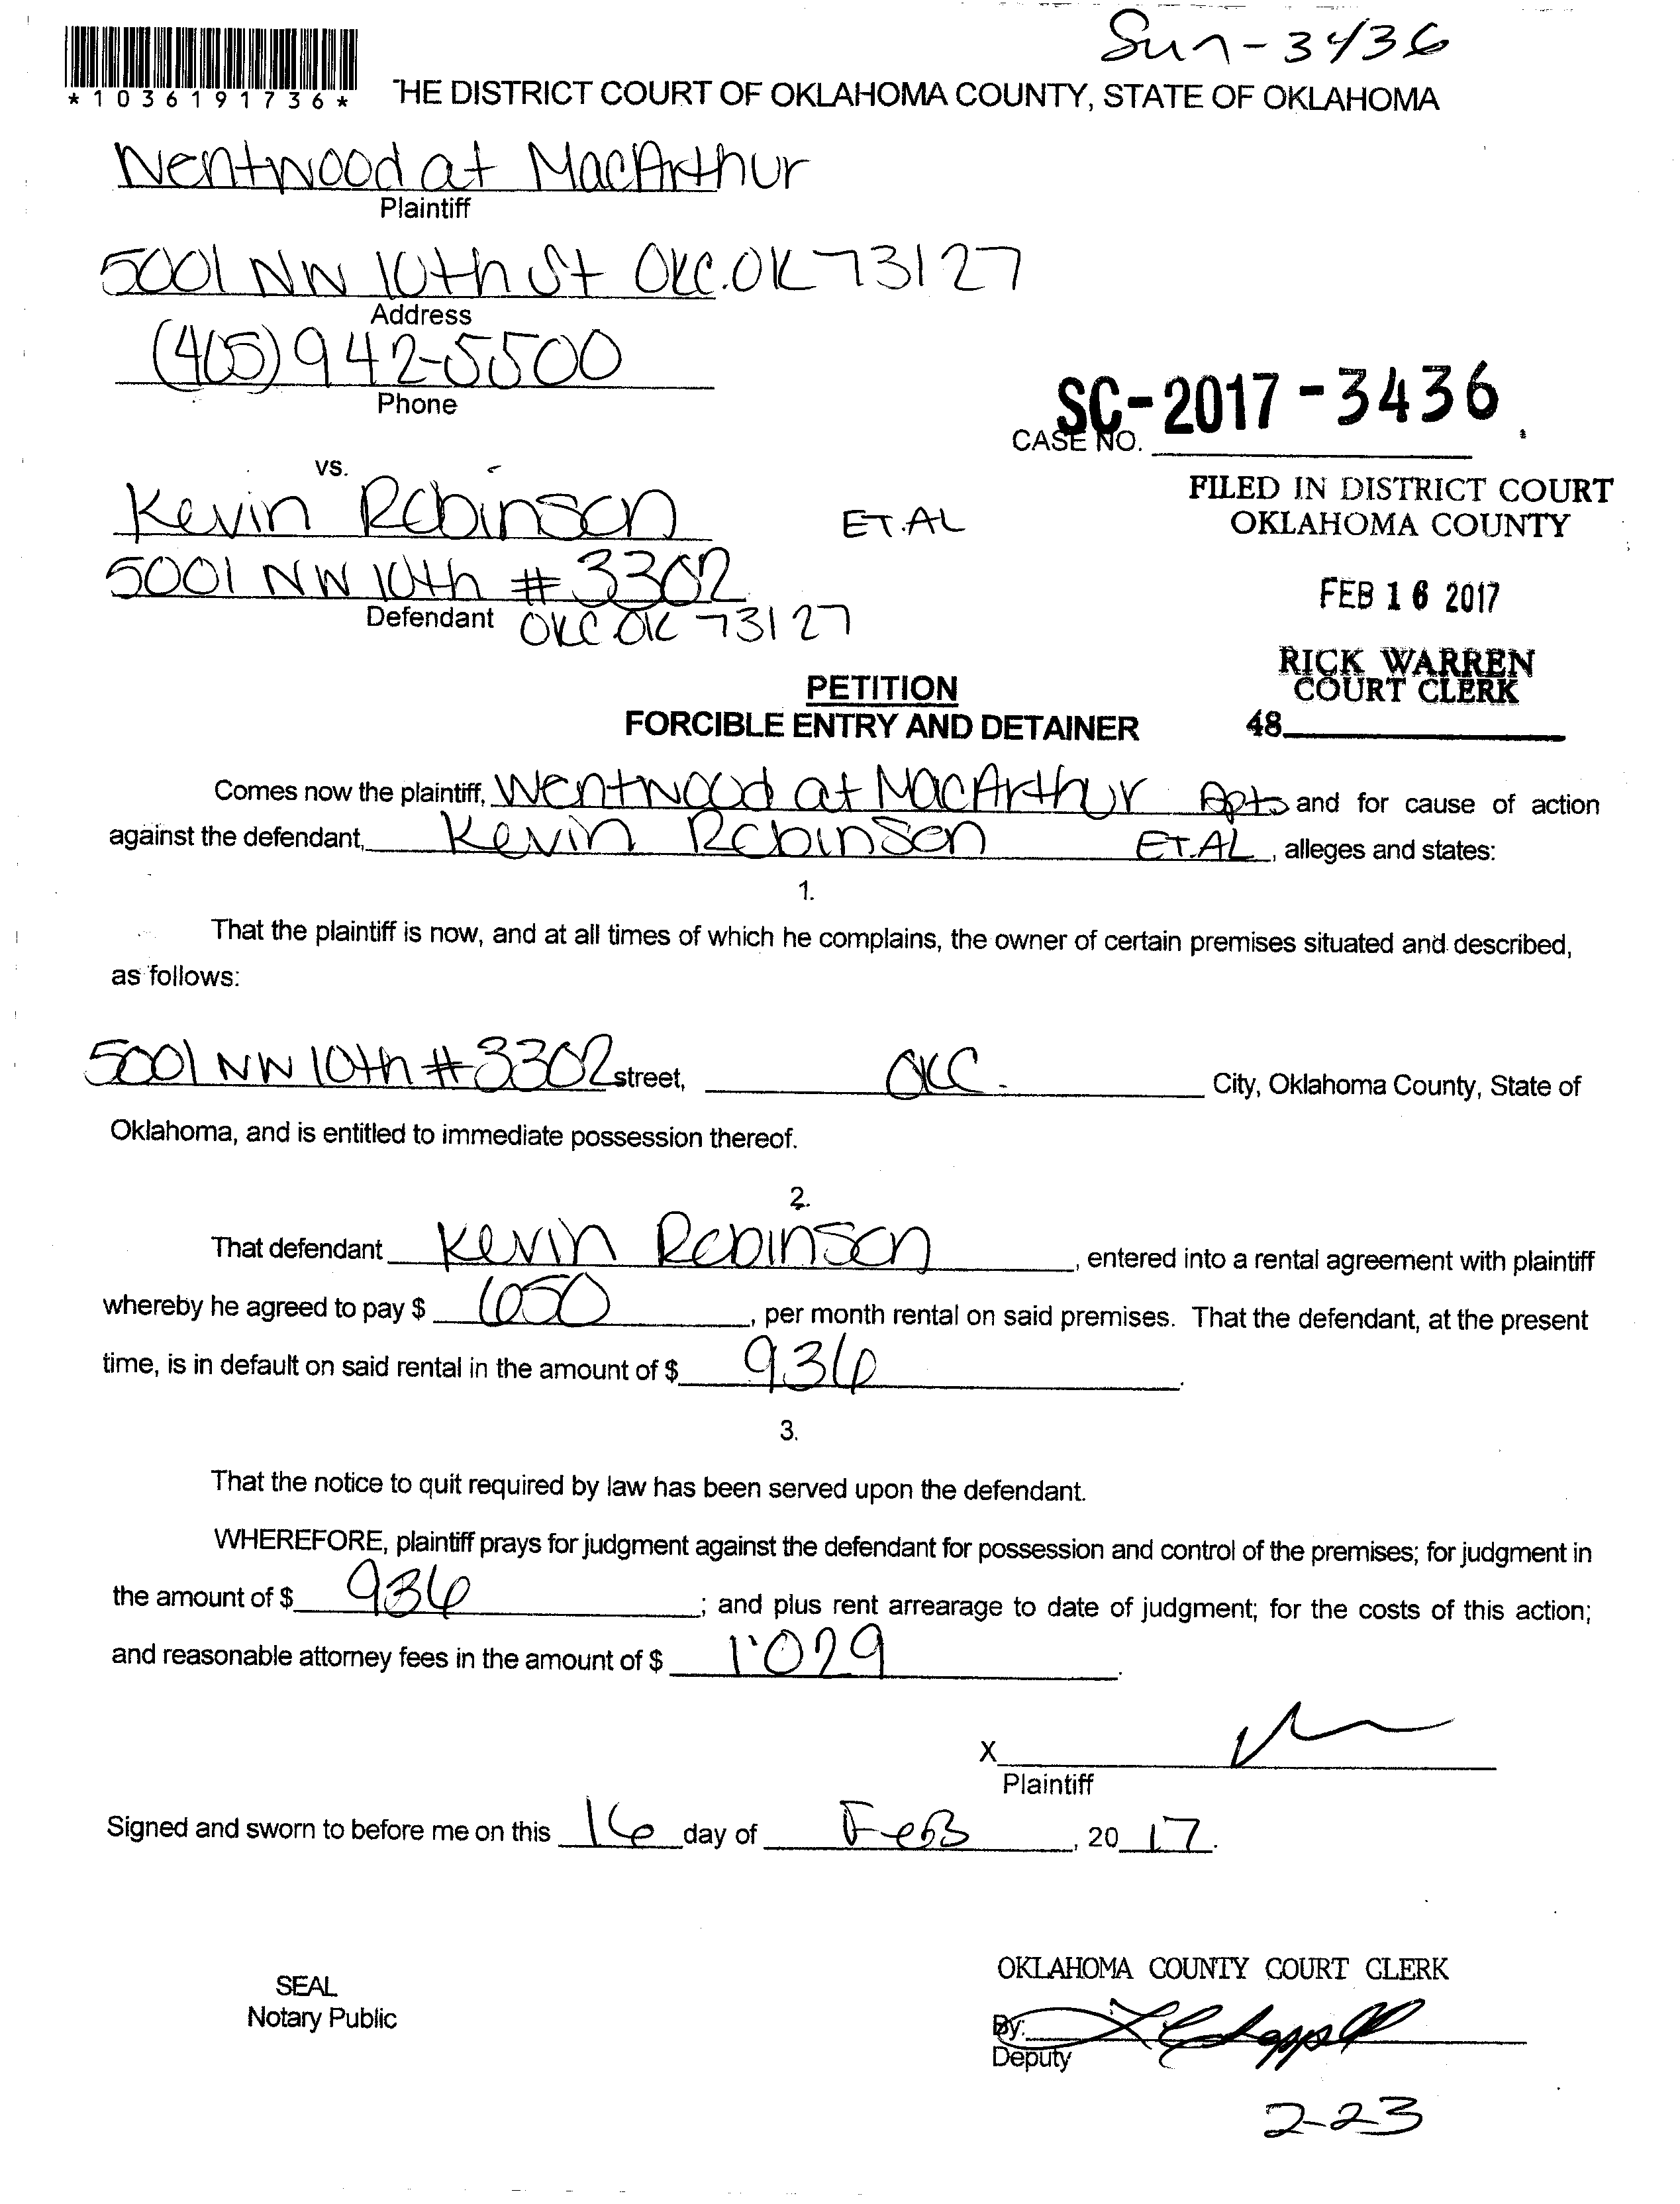 Sun-3436
*1036191736* THE DISTRICT COURT OF OKLAHOMA COUNTY, STATE OF OKLAHOMA
Wentwood at MacArthur
Plaintiff
5001 NW 10th St OKC.OK 73127
Address
(405) 942-5500
Phone
SC-2017-3436
CASE NO.
vs.
Kevin Robinson ET.AL
FILED IN DISTRICT COURT
OKLAHOMA COUNTY
5001 NW 10th #3302
Defendant OKC OK 73127
FEB 16 2017
RICK WARREN
COURT CLERK
48
PETITION
FORCIBLE ENTRY AND DETAINER
Comes now the plaintiff, Wentwood at MacArthur Apts and for cause of action
against the defendant, Kevin Robinson ET.AL, alleges and states:
1.
That the plaintiff is now, and at all times of which he complains, the owner of certain premises situated and described,
as follows:
5001 NW 10th #3302 street, OKC. City, Oklahoma County, State of
Oklahoma, and is entitled to immediate possession thereof.
2.
That defendant Kevin Robinson, entered into a rental agreement with plaintiff
whereby he agreed to pay $ 650, per month rental on said premises. That the defendant, at the present
time, is in default on said rental in the amount of $ 936.
3.
That the notice to quit required by law has been served upon the defendant.
WHEREFORE, plaintiff prays for judgment against the defendant for possession and control of the premises; for judgment in
the amount of $ 936; and plus rent arrearage to date of judgment; for the costs of this action;
and reasonable attorney fees in the amount of $ 1'029.
X
Plaintiff
Signed and sworn to before me on this 16 day of Feb, 2017.
SEAL
Notary Public
OKLAHOMA COUNTY COURT CLERK
By:
Deputy
2-23